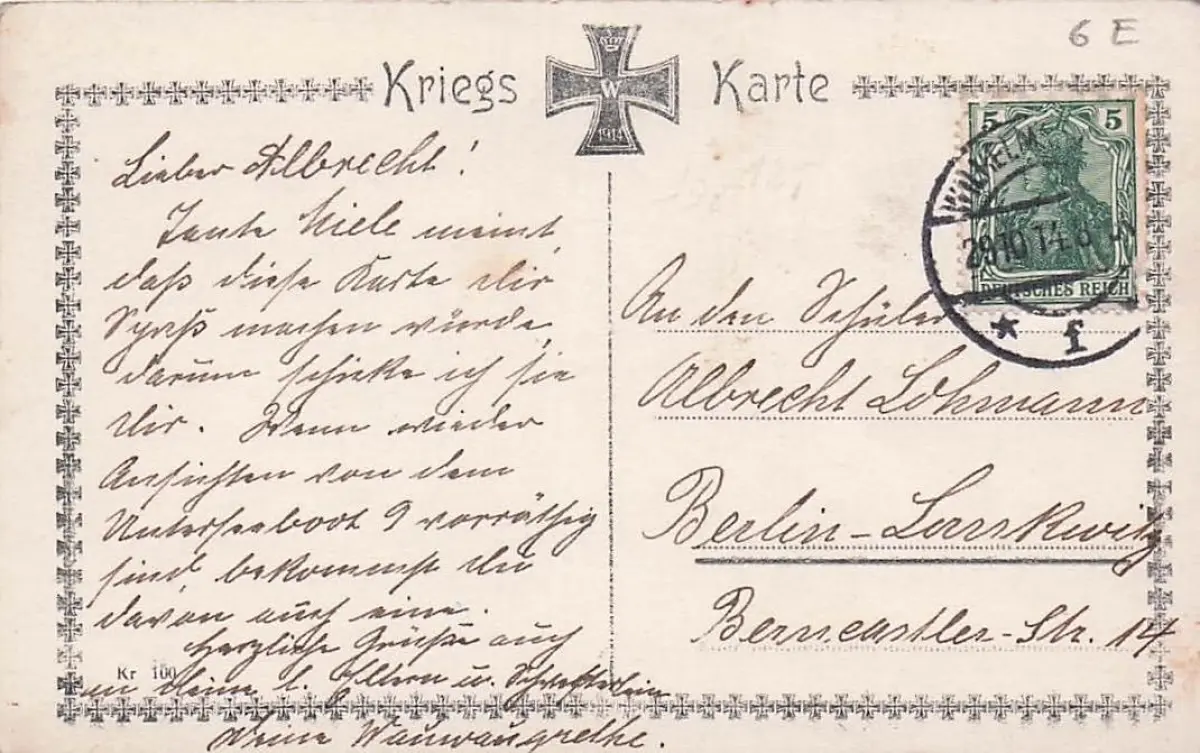 6 E
Kriegs Karte
W
1914
5 5
DEUTSCHES REICH
WILHELM
29.10.14.8
* f
Lieber Albrecht!
Tante Miele meint,
daß diese Karte dir
Spaß machen würde,
darum schicke ich sie
dir. Wenn wieder
Ansichten von dem
Unterseeboot 9 vorräthig
sind, bekommst du
davon auch eine.
Herzliche Grüße auch
an deine l. Eltern u. Schwesterlein
Deine Wauwaugrethe.
Kr 100
An den Schüler
Albrecht Lohmann
Berlin-Lankwitz
Berncastler-Str. 14